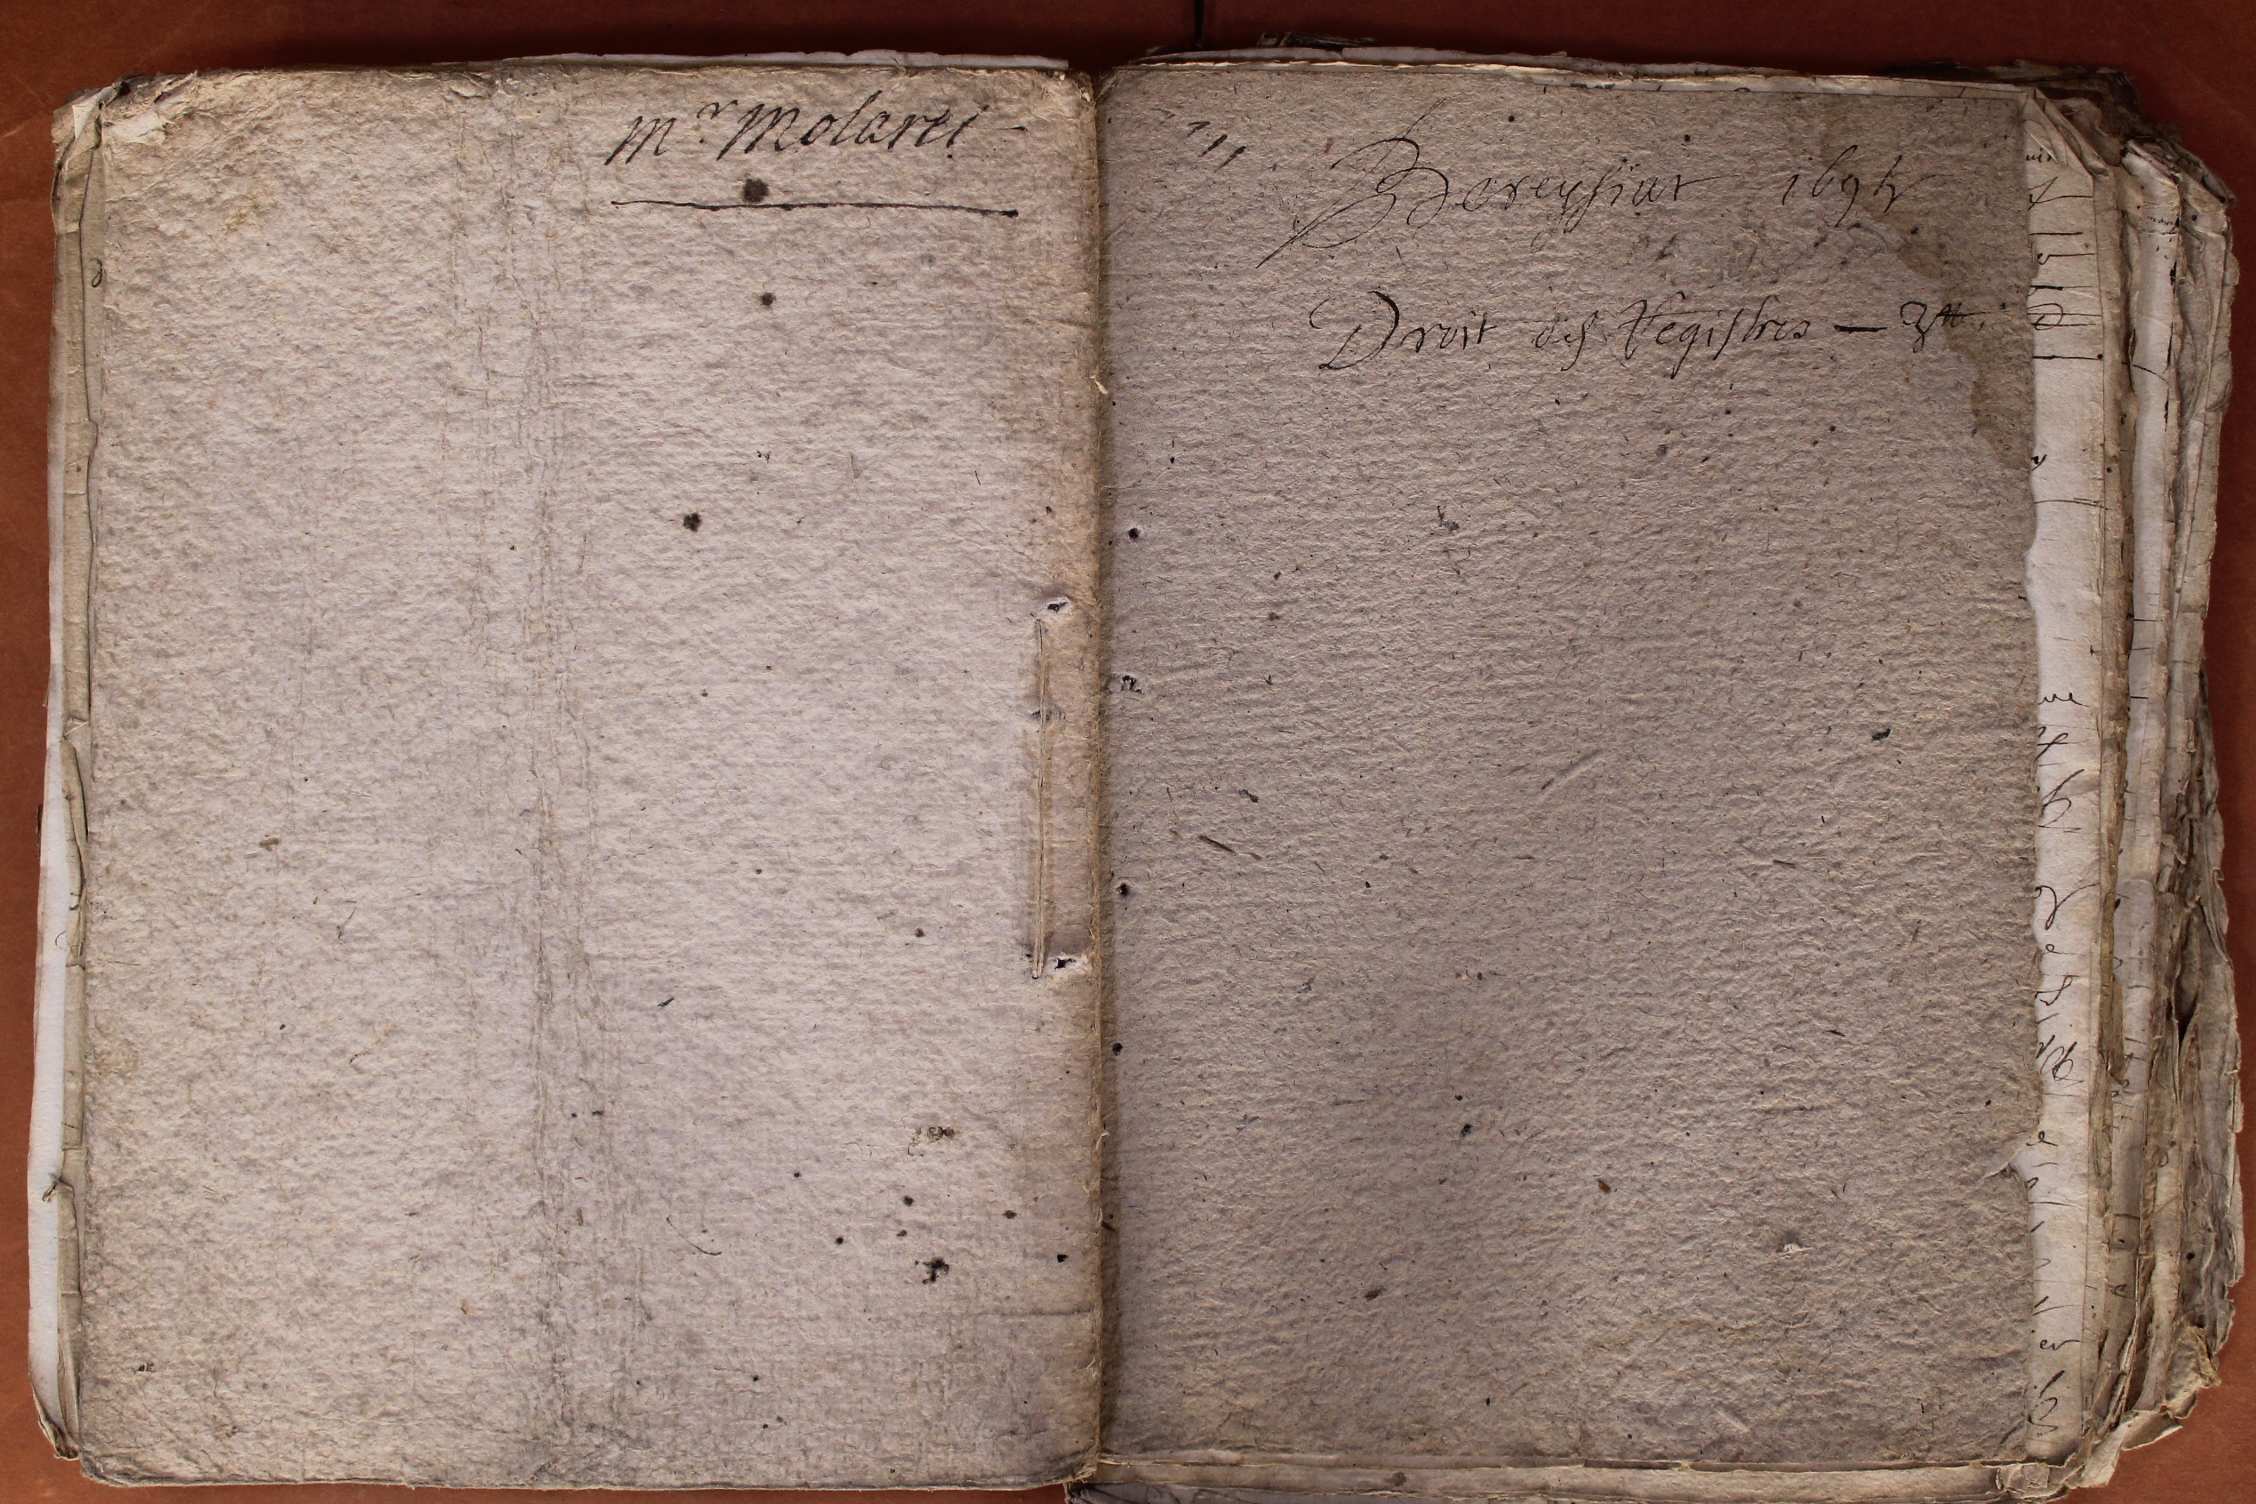 Mr Molaret
Bereysiat 1694
Droit des Registres — 3tt